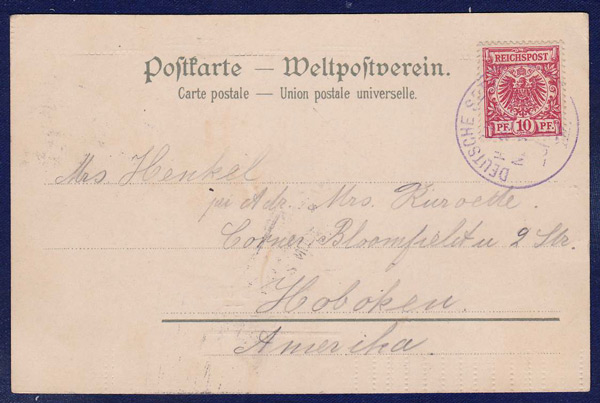 Postkarte — Weltpostverein.
Carte postale — Union postale universelle.
REICHSPOST
PF. 10 PF.
DEUTSCHE
Mrs. Henkel
pr. Adr. Mrs.
Corner Bloomfield u 2 Str.
Hoboken.
Amerika.